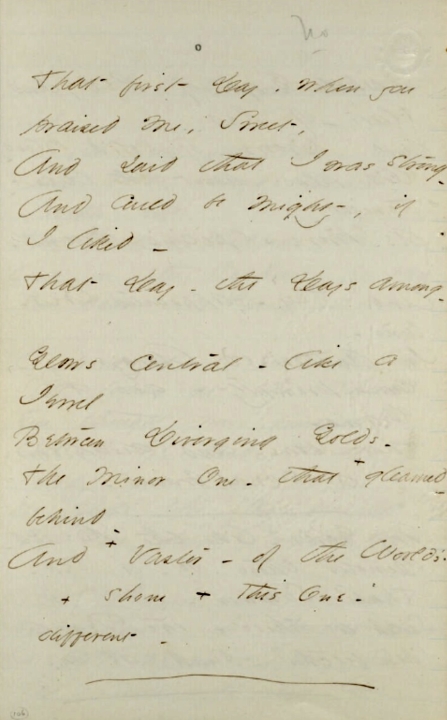 That first Day, when you
praised Me, Sweet,
And said that I was strong -
And could be mighty, if
I liked -
That Day - the Days among -

Glows Central - like a
Jewel
Between Diverging Golds -
The Minor One - that + gleamed
behind -
And + Vaster - of the World's -
+ shone + this One -
different -